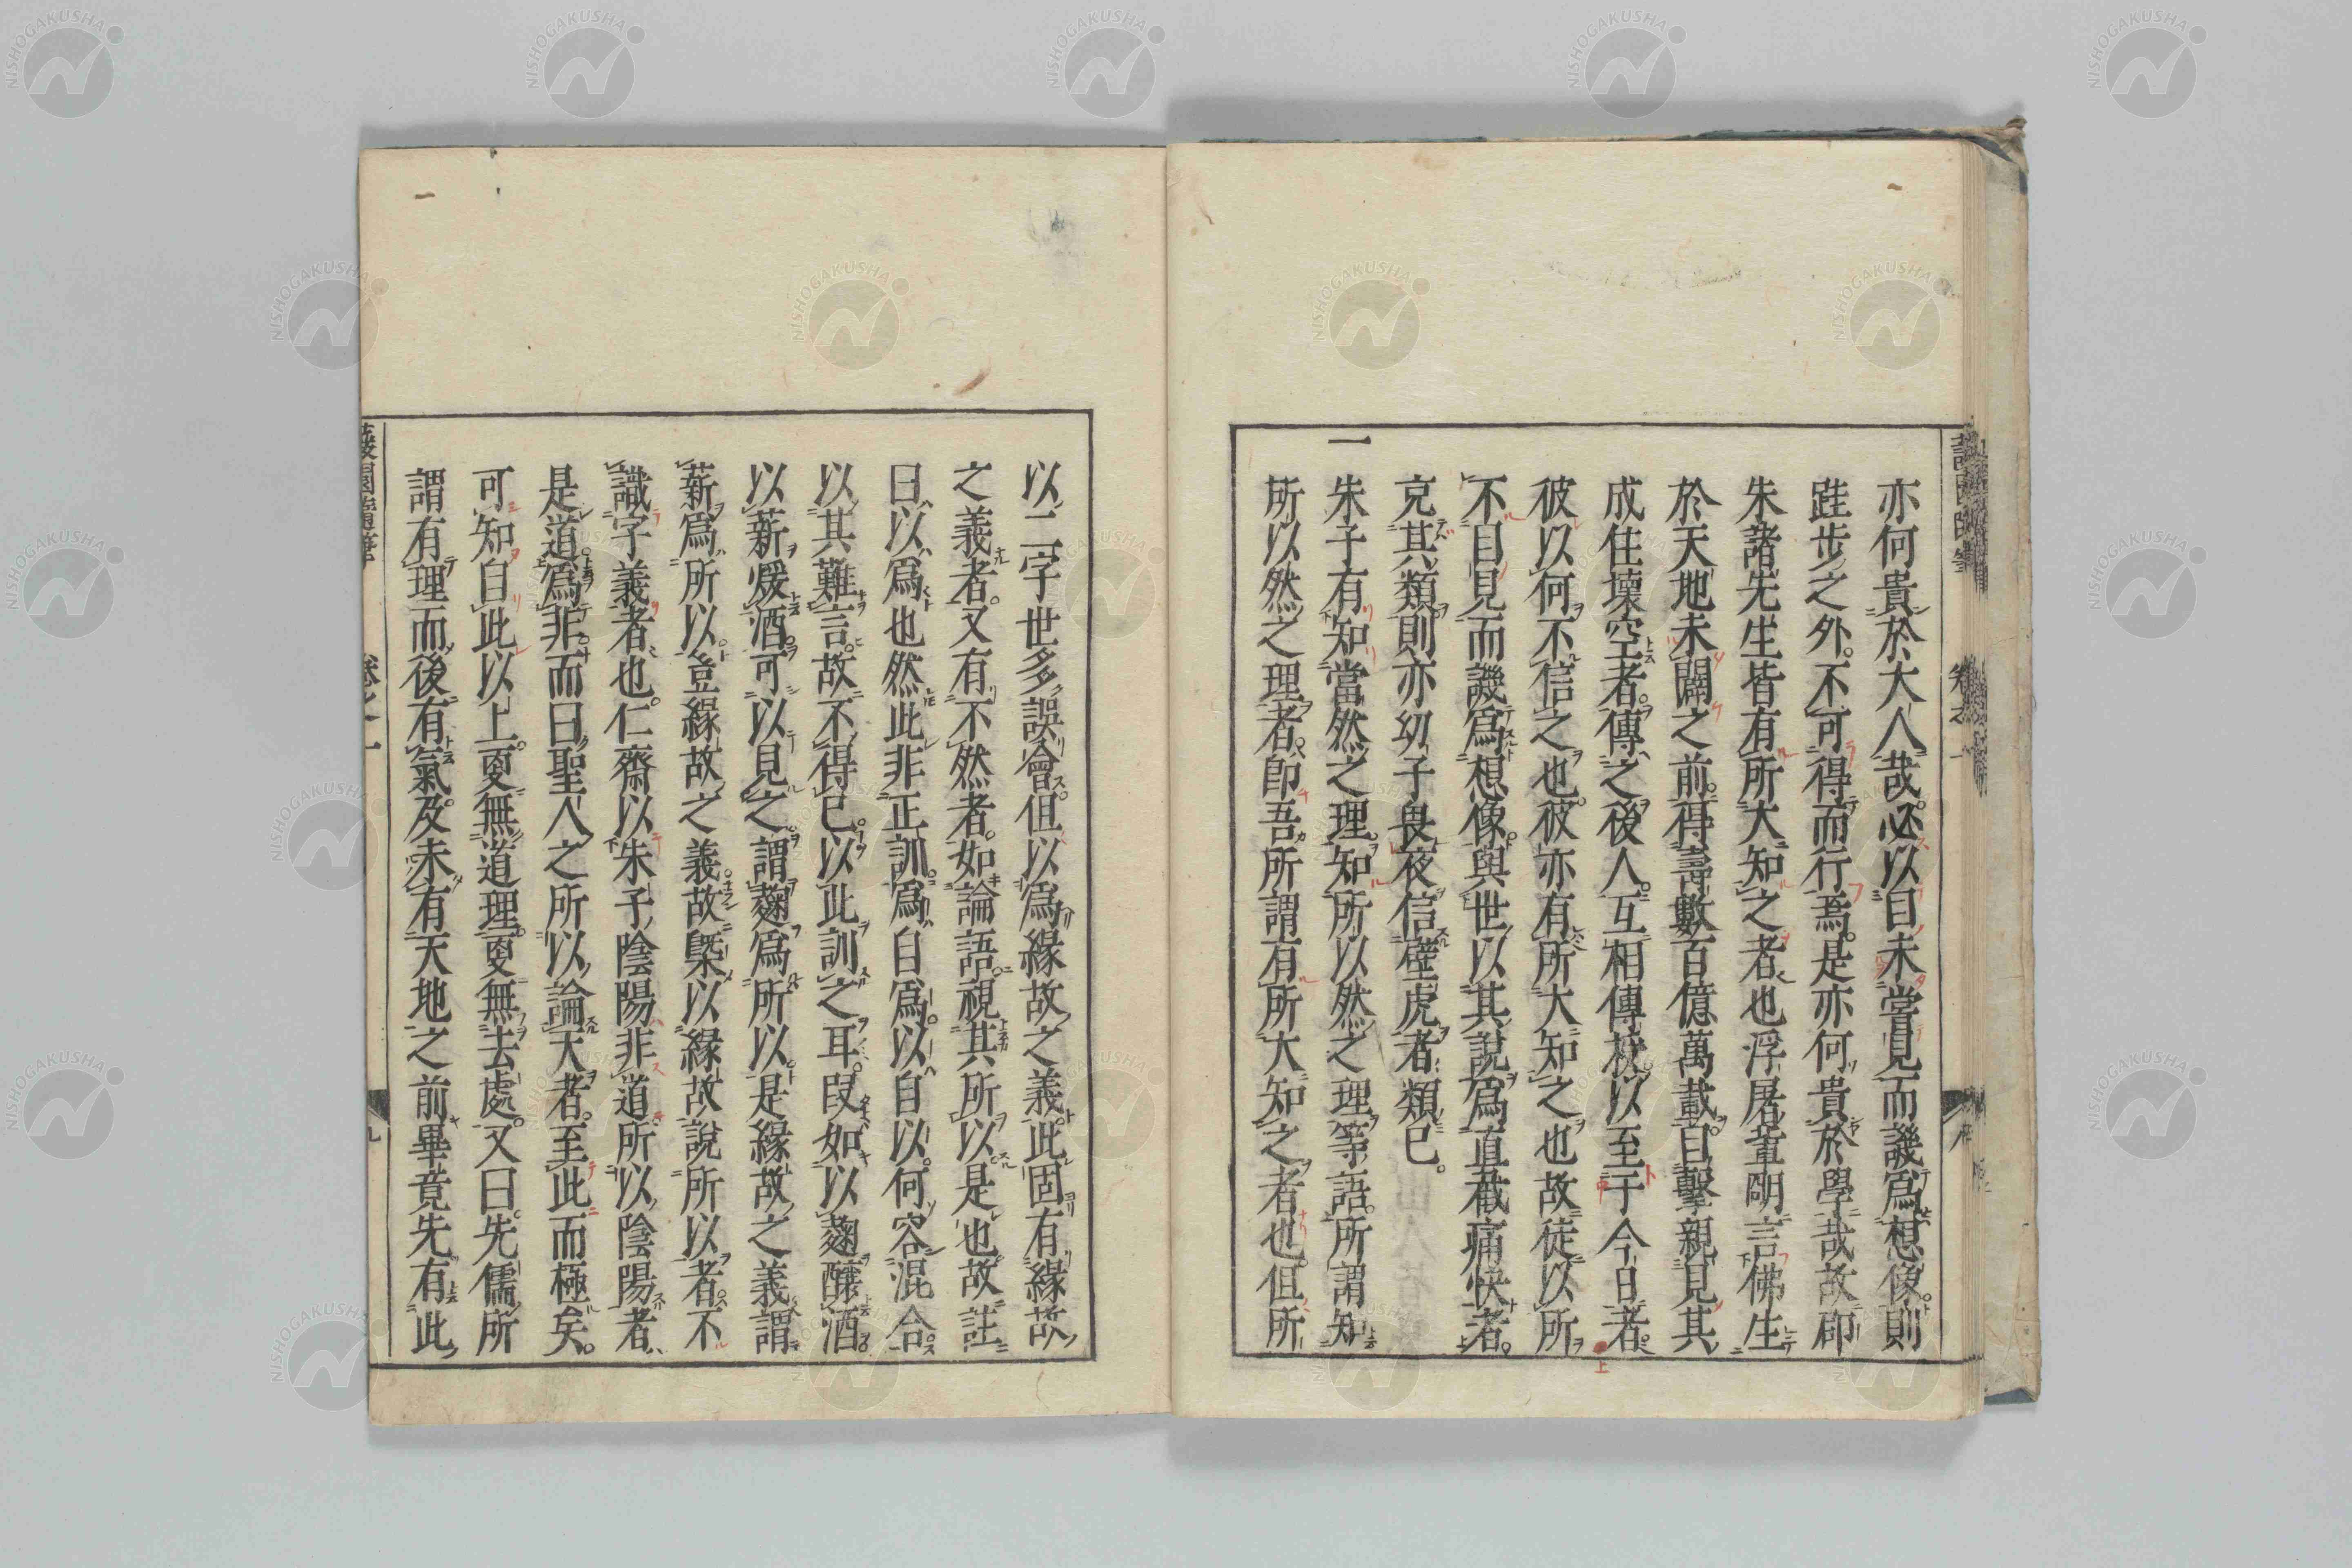 亦何貴於大人哉必以目未嘗見而譏爲想像則
跬步之外不可得而行焉是亦何貴於學哉故卽
朱諸先生皆有所大知之者也浮屠輩硎言佛生
於天地未闢之前得壽數百億萬載目擊親見其
成住壞空者傳之後人互相傳校以至于今日者
彼以何不信之也彼亦有所大知之也故徒以所
不目見而譏爲想像與世以其說爲直截痛快者
克其類則亦幼子畏夜信壁虎者類已
一朱子有知當然之理知所以然之理等語所謂知
所以然之理者卽吾所謂有所大知之者也但所
以二字世多誤會但以爲緣故之義此固有緣故
之義者又有不然者如論語視其所以是也故註
曰以爲也然此非正訓爲自爲以自以何容混合
以其難言故不得已以此訓之耳叚如以麴釀酒
以薪煖酒可以見之謂麴爲所以是緣故之義謂
薪爲所以豈緣故之義故槩以緣故說所以者不
識字義者也仁齋以朱子陰陽非道所以陰陽者
是道爲非而曰聖人之所以論天者至此而極矣
可知自此以上更無道理更無去處又曰先儒所
謂有理而後有氣及未有天地之前畢竟先有此
蘐園隨筆 卷之一 九
NISHOGAKUSHA